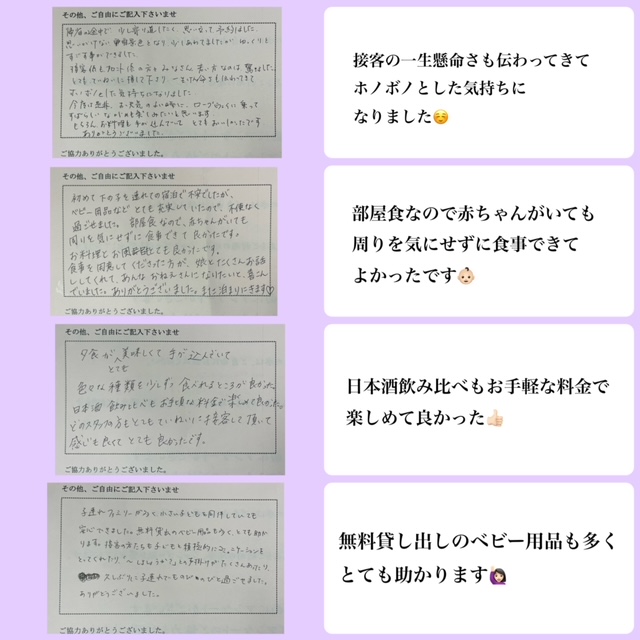 その他、ご自由にご記入下さいませ
少し寄り道したく
すごす事ができました。
ホノボノとした気持ちになりました。
ありがとうございました。
ご協力ありがとうございました。
接客の一生懸命さも伝わってきて
ホノボノとした気持ちに
なりました☺️
その他、ご自由にご記入下さいませ
初めて下の子を連れての宿泊で不安でしたが、
ベビー用品など とても充実していたので、不便なく
過ごせました。部屋食なので、赤ちゃんがいても
周りを気にせずに食事できて良かったです。
お料理とお風呂とても良かったです。
食事を用意してくださった方が、娘とたくさんお話
ししてくれて、あんなおねえさんになりたいと、喜こん
でいました。ありがとうございました。また泊まりにきます♡
ご協力ありがとうございました。
部屋食なので赤ちゃんがいても
周りを気にせずに食事できて
よかったです👶🏻
その他、ご自由にご記入下さいませ
夕食がとても美味しくて 手が込んでいて
色々な種類を少しずつ食べれるところが良かった。
日本酒飲み比べもお手頃な料金で楽しめて良かった。
どのスタッフの方もとてもていねいに接客して頂いて
感じも良くてとても良かったです。
ご協力ありがとうございました。
日本酒飲み比べもお手軽な料金で
楽しめて良かった👍🏻
その他、ご自由にご記入下さいませ
子連れファミリーが多く、小さい子どもを同伴していても
安心できました。無料貸出のベビー用品も多く、とても助か
ります。接客の方たちも子どもと積極的にコミュニケーション
とってくれたり、
久しぶりに子連れでものびのびと過ごせました。
ありがとうございました。
ご協力ありがとうございました。
無料貸し出しのベビー用品も多く
とても助かります🙋🏻‍♀️